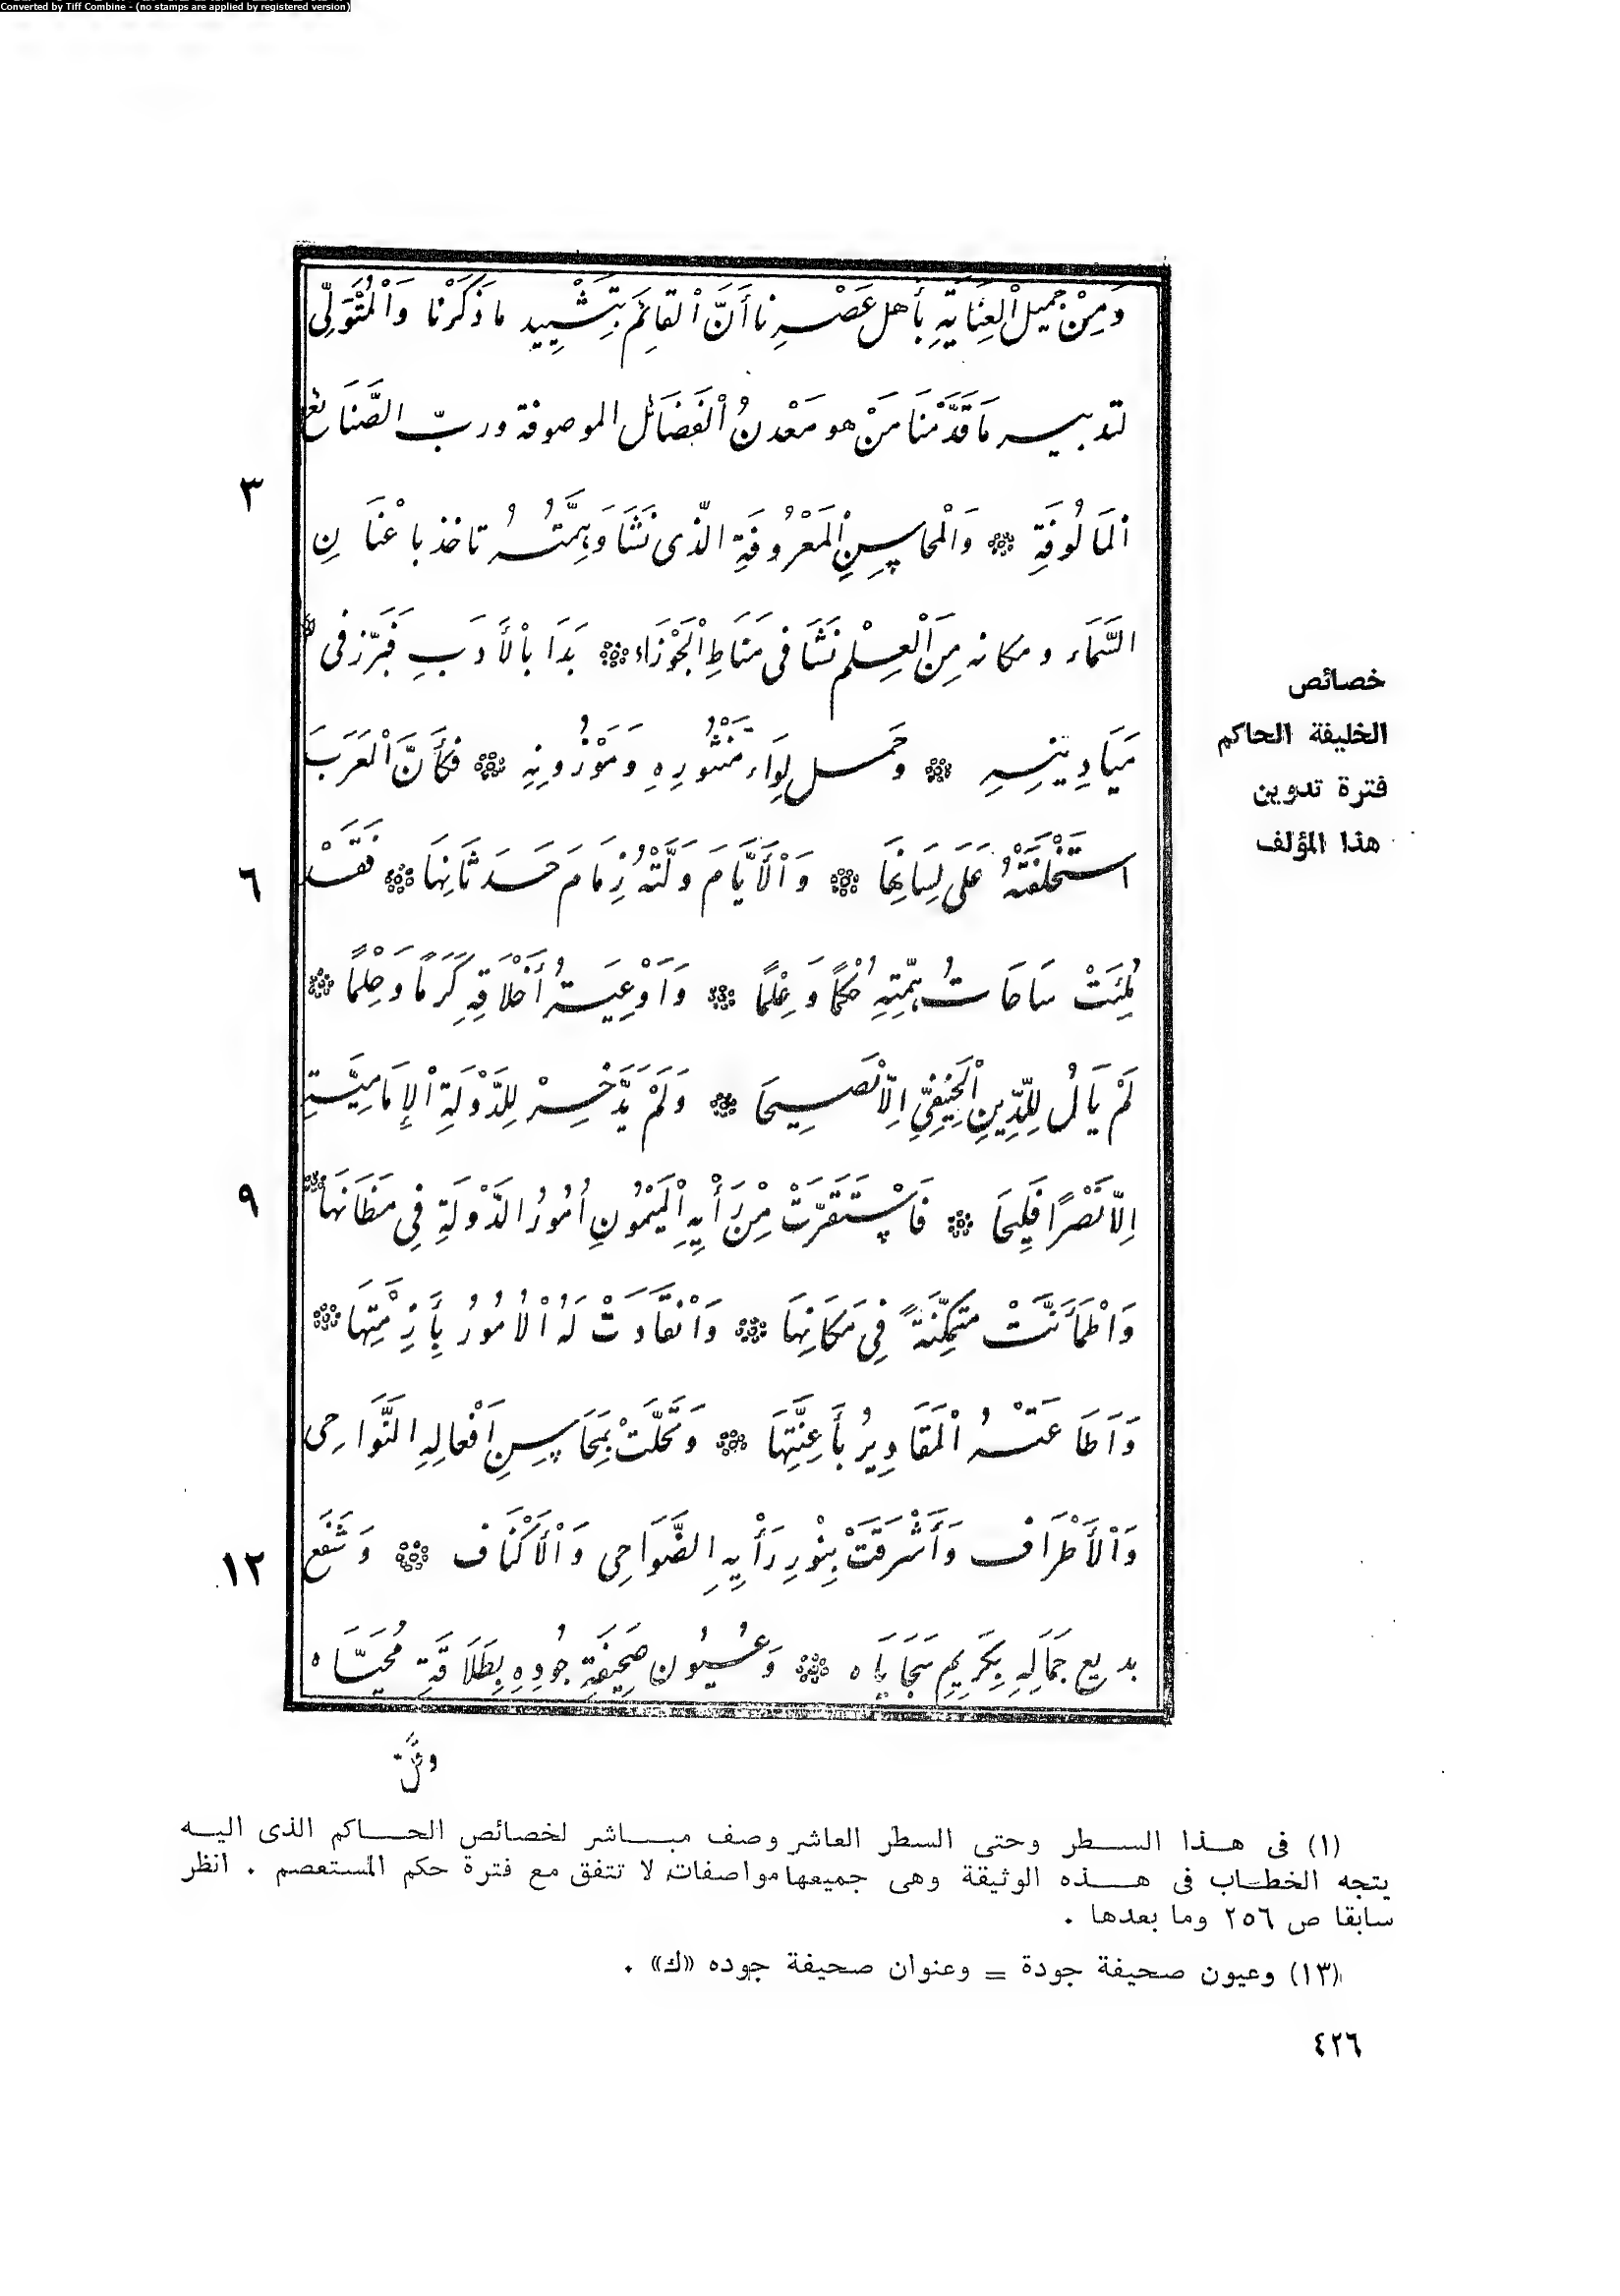 Converted by Tiff Combine - (no stamps are applied by registered version)
وَمِنْ جَمِيلِ الْعِنَايَةِ بِأَهل عَصْرِنا أَنَّ الْقَائِمَ بِتَشْيِيد مَا ذَكَرْنا وَالْمُتَوَلِّى
لتدبير مَا قَدَّمْنَا مَنْ هو مَعْدنُ الْفَضَائل الموصوفة وربّ الصَّنَائع
٣
الْمَالُوفَةِ ۞ وَالْمحاسِنِ الْمَعْرُوفَةِ الّذى نَشَا وَهِمَّتُهُ تاخذ باعْنَانِ
السَّمَاء ومكانه مِنَ الْعِلْم نَشَا فى مَنَاطِ الْجَوْزَاء ۞ بَدَا بالْأَدَبِ فَبَرّز فى
مَيَادِينِهِ ۞ وحَمل لِوَاء مَنْثُورِهِ وَمَوْزُونِهِ ۞ فكَأَنَّ الْعَرَبَ
٦
استَخْلَفَتْهُ عَلَى لِسَانِهَا ۞ وَالْأَيَّامَ وَلَّتْهُ زِمَامَ حَدَثَانِهَا ۞ فَقَدْ
مُلِئَتْ سَاحَاتُ هِمَّتِهِ حُكْمًا وَعِلْمًا ۞ وَاَوْعِيَةُ أَخْلَاقِهِ كَرَمًا وَحِلْمًا ۞
لَمْ يَالُ لِلدِّينِ الْحَنِيفِيِّ اِلّا نَصِيحَا ۞ وَلَمْ يَدَّخِرْ لِلدَّوْلَةِ الْإِمَامِيَّةِ
٩
اِلّا نَصْرًا فَلِيحَا ۞ فَاسْتَقَرَّتْ مِنْ رَأْيِهِ الْمَيْمُونِ اُمُورُ الدَّوْلَةِ فِى مَظَانِهَا ۞
وَاطْمَأَنَّتْ مُتَمَكِّنَةً فِى مَكَانِهَا ۞ وَانْقَادَتْ لَهُ الْاُمُورُ بِأَزِمَّتِهَا ۞
وَاَطَاعَتْهُ الْمَقَادِيرُ بأَعِنَّتِهَا ۞ وَتَحَلَّتْ بِمَحَاسِنِ اَفْعَالِهِ النَّوَاحِى
١٢
وَالْأَطْرَاف وَأَشْرَقَتْ بِنُورِ رَأْيِهِ الضَّوَاحِى وَالْأَكْنَاف ۞ وَشَفَع
بديع جَمَالِهِ بِكَرِيمِ سَجَايَاه ۞ وَعُيُون صَحِيفَةِ جُودِهِ بِطَلَاقَةِ مُحَيَّاه
خصائص
الخليفة الحاكم
فترة تدوين
هذا المؤلف
(١) فى هذا السطر وحتى السطر العاشر وصف مباشر لخصائص الحاكم الذى اليه
يتجه الخطاب فى هذه الوثيقة وهى جميعها مواصفات لا تتفق مع فترة حكم المستعصم . انظر
سابقا ص ٢٥٦ وما بعدها .
(١٣) وعيون صحيفة جودة = وعنوان صحيفة جوده «ك» .
٤٢٦